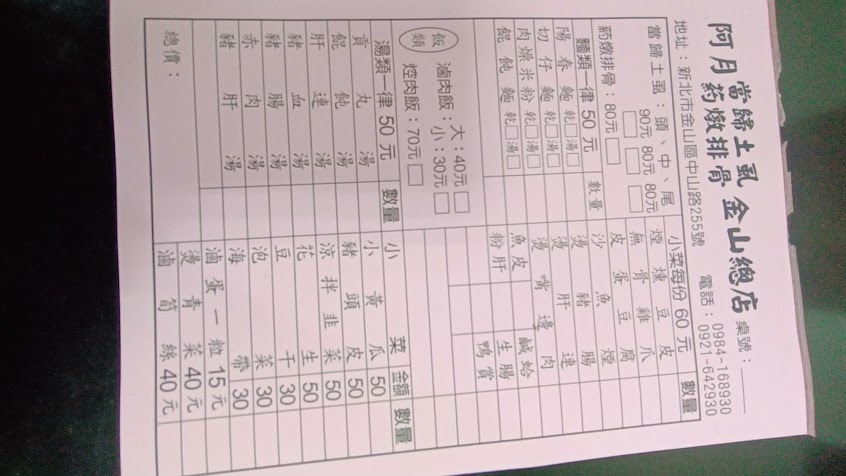 阿月 當歸土虱 藥燉排骨 金山總店 桌號：
地址：新北市金山區中山路255號 電話：0984-168930
0921-642930
當歸土虱：頭、中、尾
90元 80元 80元
□ □ □
药燉排骨：80元□
麵類一律50元 數量
陽春麵 乾□湯□
切仔麵 乾□湯□
肉燥米粉 乾□湯□
餛飩麵 乾□湯□
飯類
滷肉飯：大：40元□
小：30元□
焢肉飯：70元□
湯類一律50元 數量
貢丸湯
餛飩湯
肝連湯
豬血湯
豬腸湯
赤肉湯
豬肝湯
總價：
小菜每份60元 數量
煙燻豆皮
無骨雞爪
皮蛋豆腐
沙魚煙
燙豬腸
燙肝連
燙嘴邊肉
魚皮 鹹蛤
粉肝 生腸
鴨賞
小菜 金額 數量
小黃瓜 50
豬頭皮 50
涼拌韭菜 50
花生 50
豆干 30
泡菜 30
海帶 30
滷蛋一粒 15元
燙青菜 40元
滷筍絲 40元